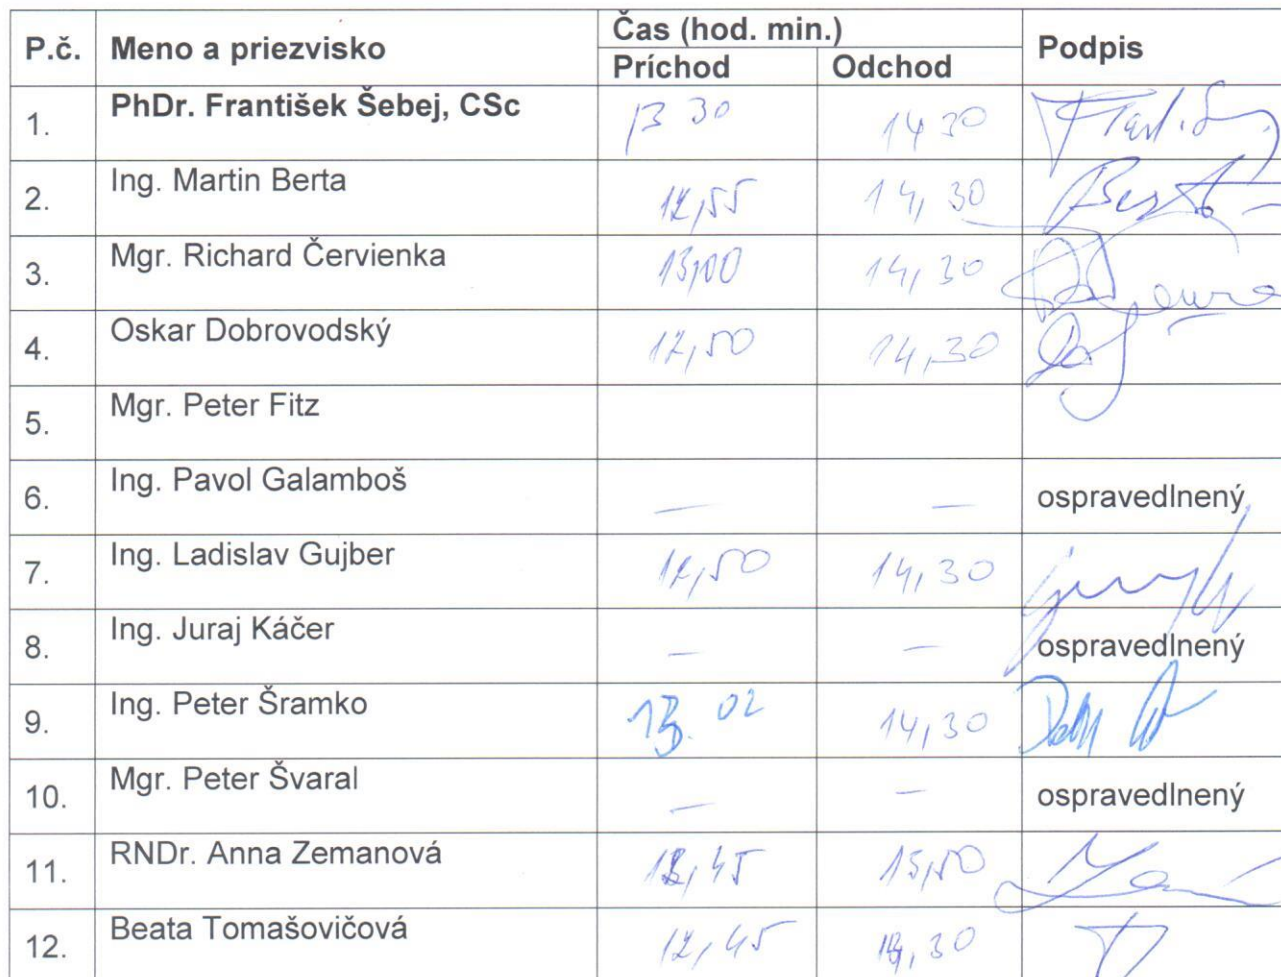 P.č. Meno a priezvisko Čas (hod. min.) Podpis
Príchod Odchod
1. PhDr. František Šebej, CSc 13 30 14 30
2. Ing. Martin Berta 12,55 14,30
3. Mgr. Richard Červienka 13,00 14,30
4. Oskar Dobrovodský 12,50 14,30
5. Mgr. Peter Fitz
6. Ing. Pavol Galamboš — — ospravedlnený
7. Ing. Ladislav Gujber 12,50 14,30
8. Ing. Juraj Káčer — — ospravedlnený
9. Ing. Peter Šramko 13. 02 14,30
10. Mgr. Peter Švaral — — ospravedlnený
11. RNDr. Anna Zemanová 15,50
12. Beata Tomašovičová 12,45 14,30